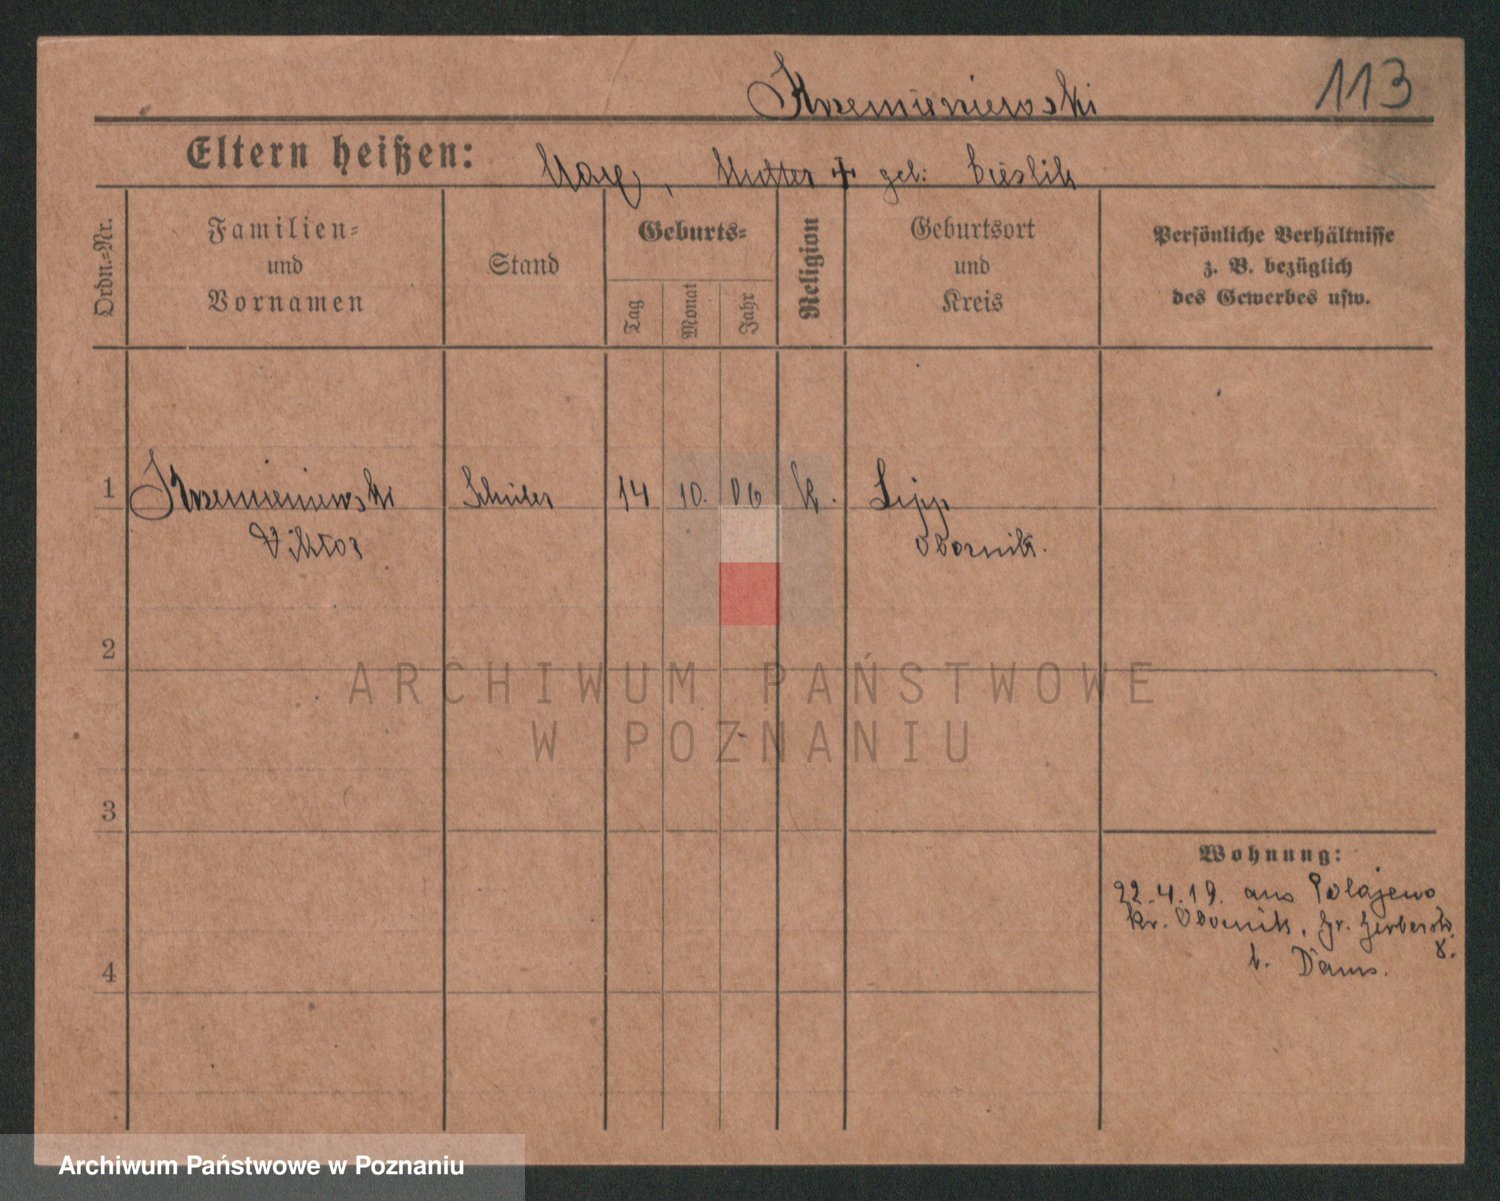 Krzemieniewski 113
Eltern heißen: , Mutter + geb: Cieslik
Ordn.-Nr.
Familien-
und
Vornamen
Stand
Geburts-
Tag
Monat
Jahr
Religion
Geburtsort
und
Kreis
Persönliche Verhältnisse
z. B. bezüglich
des Gewerbes usw.
1 Krzemieniewski Schüler 14 10. 06 k. Lipp
Viktor Obornik.
2
3
4
Wohnung:
22.4.19. aus Polajewo
Kr. Obornik, Gr. Gerberstr.
8.
b. Dams.
ARCHIWUM PAŃSTWOWE
W POZNANIU
Archiwum Państwowe w Poznaniu